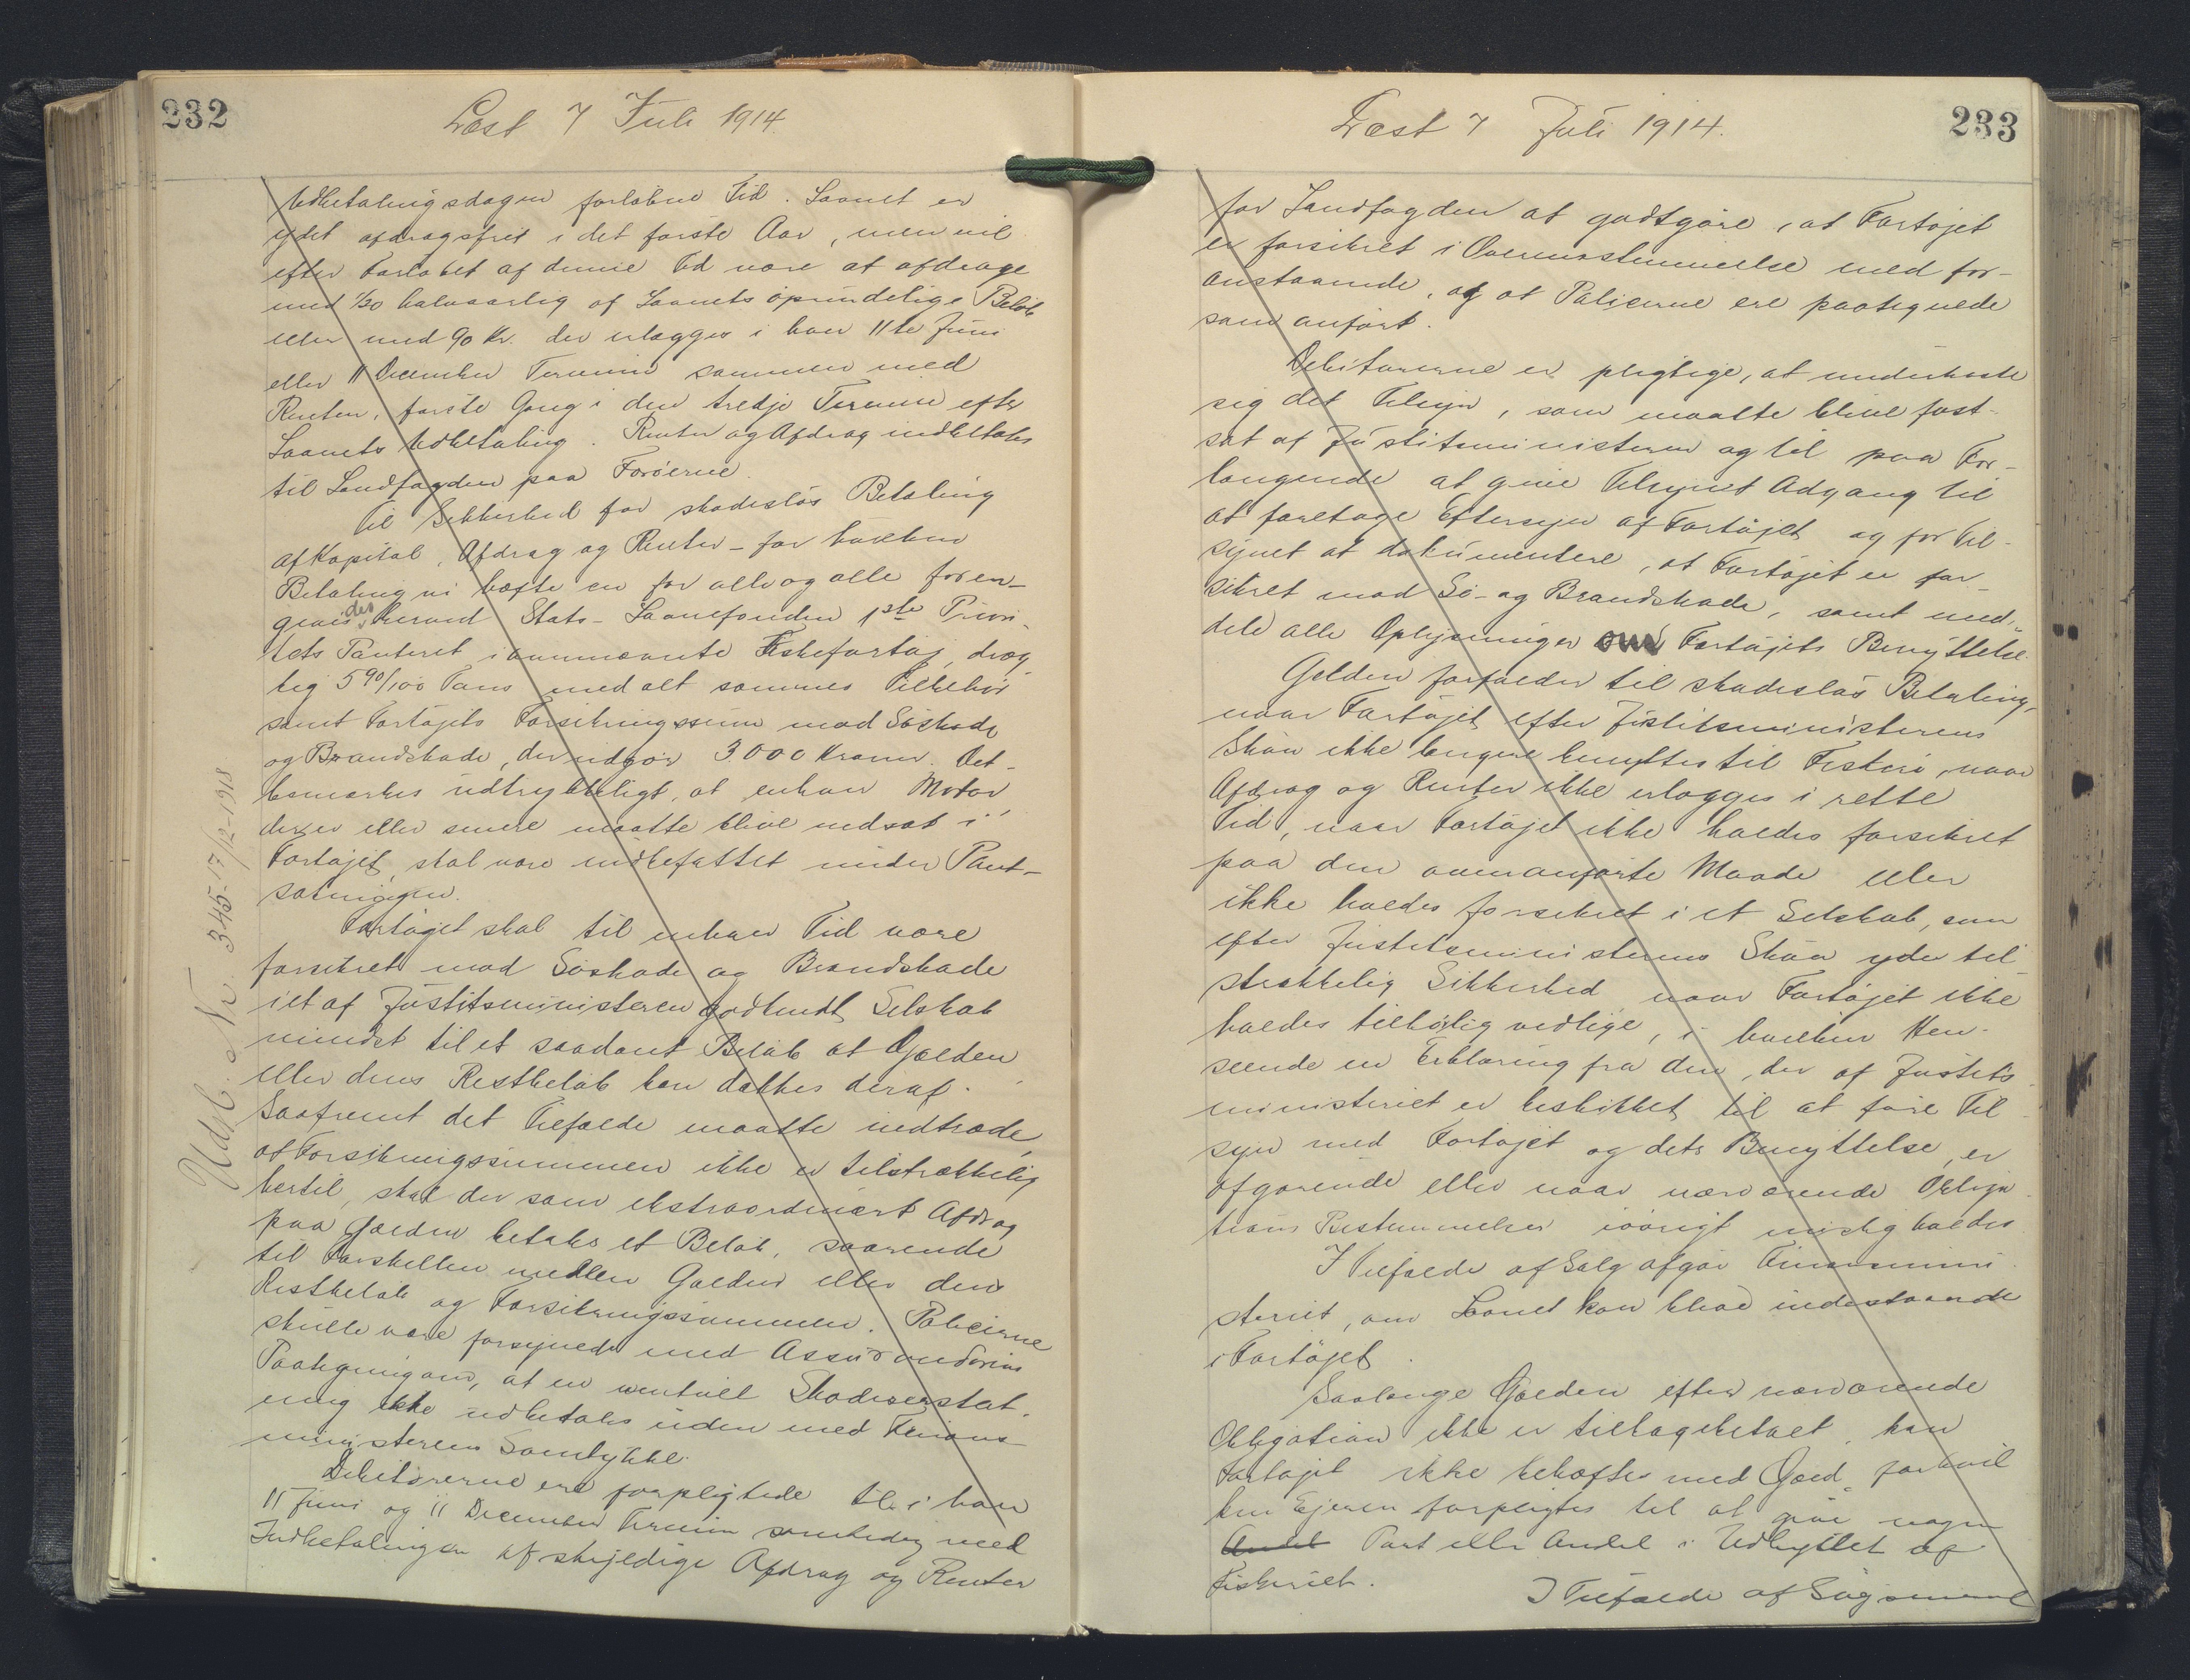 232
Læst 7 Juli 1914.
Udbetalingsdagen forløbne Tid. Laanet er
ydet afdragsfrit i det første Aar, men vil
efter Forløbet af denne Tid være at afdrage
med 1/20 halvaarlig af Laanets oprindelige Beløb
eller med 90 Kr. der erlægges i hver 11te Juni
eller 11 December Termin sammen med
Renten, første Gang i den tredje Termin efter
Laanets Udbetaling. Renter og Afdrag indbetales
til Landfogden paa Færøerne.
Til Sikkerhed for skadesløs Betaling
af Kapital, Afdrag og Renter – for hvilken
Betaling vi hæfte en for alle og alle for en –
gives des herved Stats-Laanefonden 1ste Priori-
tets Panteret i ommeldte Fiskefartøj, dræg-
tig 5 90/100 Tons med alt sammes Tilbehør
samt Fartøjets Forsikringssum mod Søskade
og Brandskade, der udgør 3000 Kroner. Det
bemærkes udtrykkeligt, at enhver Motor
der er eller senere maatte blive indsat i
Fartøjet, skal være indbefattet under Pant-
sætningen.
Fartøjet skal til enhver Tid være
forsikret mod Søskade og Brandskade
i et af Justitsministeren godkendt Selskab
mindst til et saadant Beløb at Gælden
eller dens Restbeløb kan dækkes deraf.
Saafremt det Tilfælde maatte indtræde,
at Forsikringssummen ikke er tilstrækkelig
hertil, skal der som ekstraordinært Afdrag
paa Gælden betales et Beløb, svarende
til Forskellen mellem Gælden eller dens
Restbeløb og Forsikringssummen. Policerne
skulle være forsynede med Assurandørens
Paategning om, at en eventuell Skadeserstat-
ning ikke udbetales uden med Finans-
ministerens Samtykke.
Debitorerne ere forpligtede til i hver
11 Juni og 11 December Termin samtidig med
Indbetalingen af skyldige Afdrag og Renter
Udsl. Nr. 345-17/12-1918
233
Læst 7 Juli 1914.
for Landfogden at godtgøre, at Fartøjet
er forsikret i Overensstemmelse med for-
anstaaende, og at Policerne ere paategnede
som anført.
Debitorerne er pligtige, at underkaste
sig det Tilsyn, som maatte blive fast-
sat af Justitsministeren og til paa For-
langende at give Tilsynet Adgang til
at foretage Eftersyn af Fartøjet og for Til-
synet at dokumentere, at Fartøjet er for-
sikret mod Sø- og Brandskade, samt med-
dele alle Oplysninger om Fartøjets Benyttelse.
Gælden forfalder til skadesløs Betaling,
naar Fartøjet efter Justitsministerens
Skøn ikke længere benyttes til Fiskeri, naar
Afdrag og Renter ikke erlægges i rette
Tid, naar Fartøjet ikke holdes forsikret
paa den ovenanførte Maade eller
ikke holdes forsikret i et Selskab, som
efter Justitsministerens Skøn yder til-
strækkelig Sikkerhed naar Fartøjet ikke
holdes tilbørlig vedlige, i hvilken Hen-
seende en Erklæring fra den, der af Justits
ministeriet er beskikket til at føre Til-
syn med Fartøjet og dets Benyttelse, er
afgørende eller naar nærværende Obliga-
tions Bestemmelser iøvrigt mislig holdes
I Tilfælde af Salg afgør Finansmini-
steriet, om Laanet kan blive indestaaende
i Fartøjet.
Saalænge Gælden efter nærværende
Obligation ikke er tilbagebetalt, kan
Fartøjet ikke behæftes med Gæld, forhvil
ken Ejeren forpligtes til at give nogen
Andel Part eller Andel i Udbyttet af
Fiskeriet.
I Tilfælde af Søgsmaal